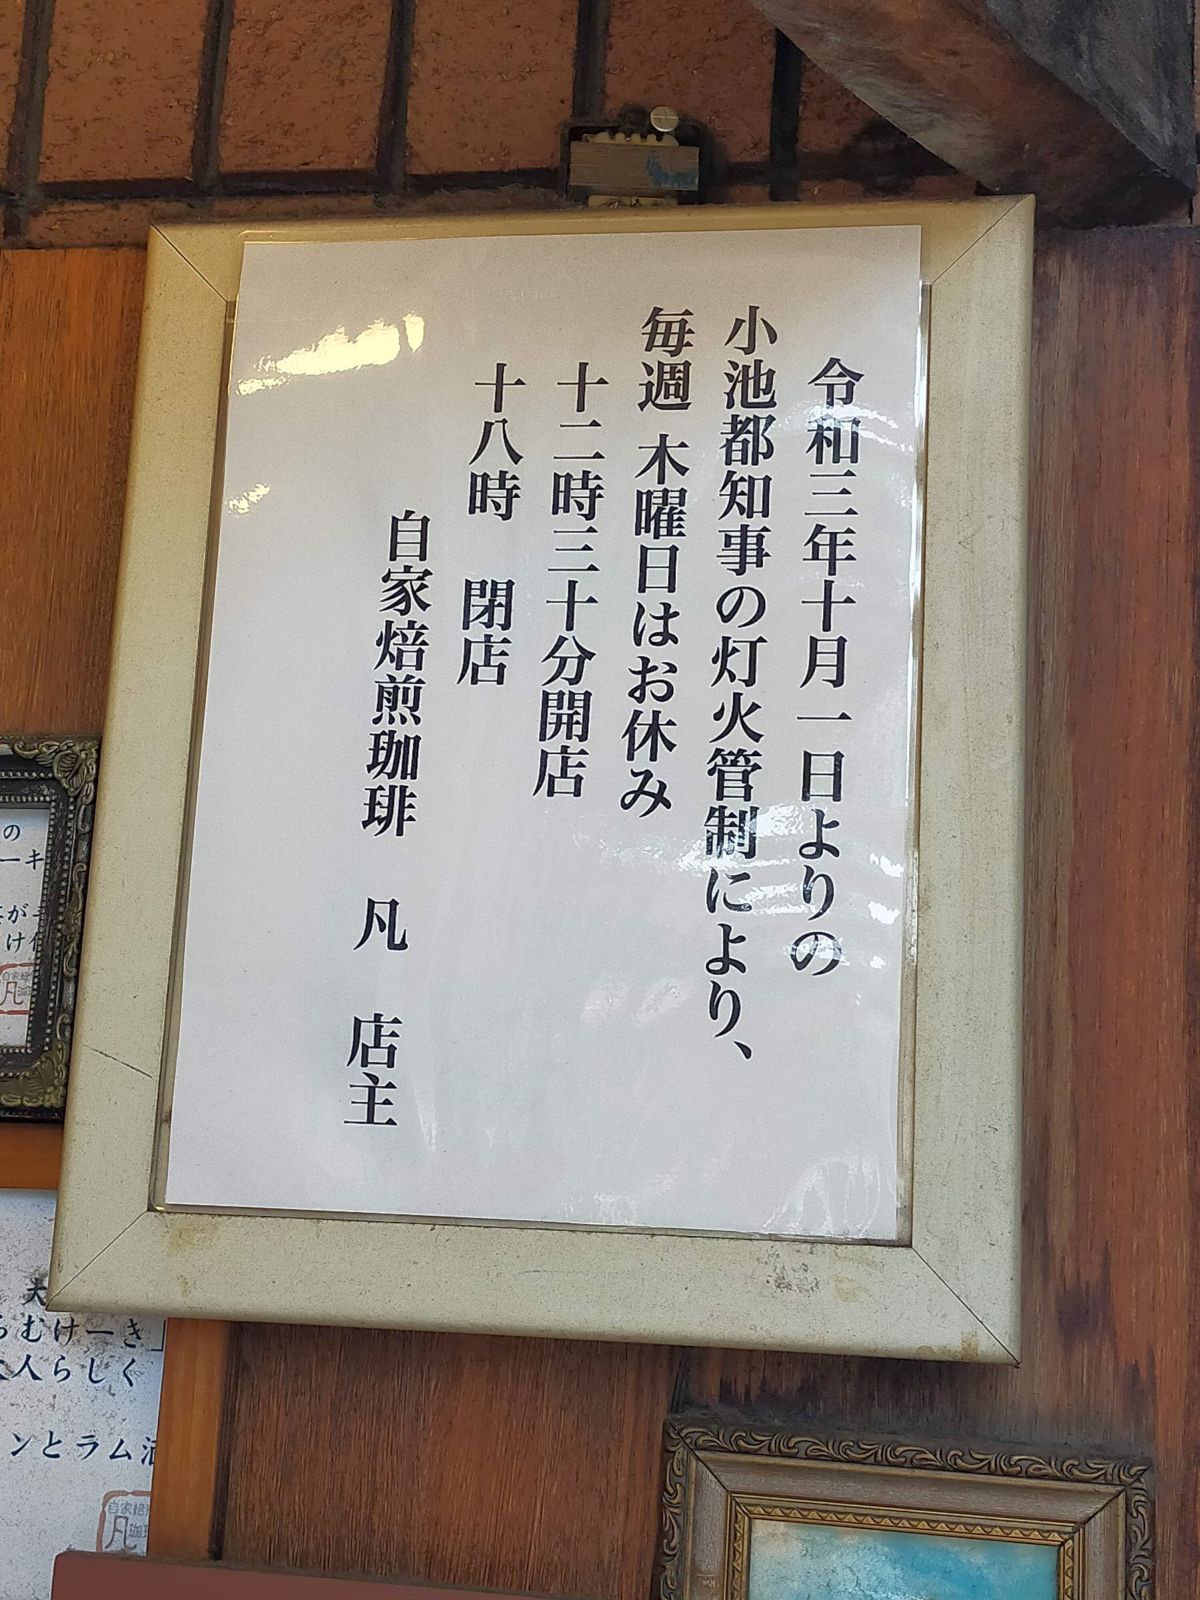 令和三年十月一日よりの
小池都知事の灯火管制により、
毎週 木曜日はお休み
十二時三十分開店
十八時 閉店
自家焙煎珈琲 凡 店主
の
ーキ
が
け
大
らむけーき」
人らしく
ンとラム酒
自家焙
凡
珈